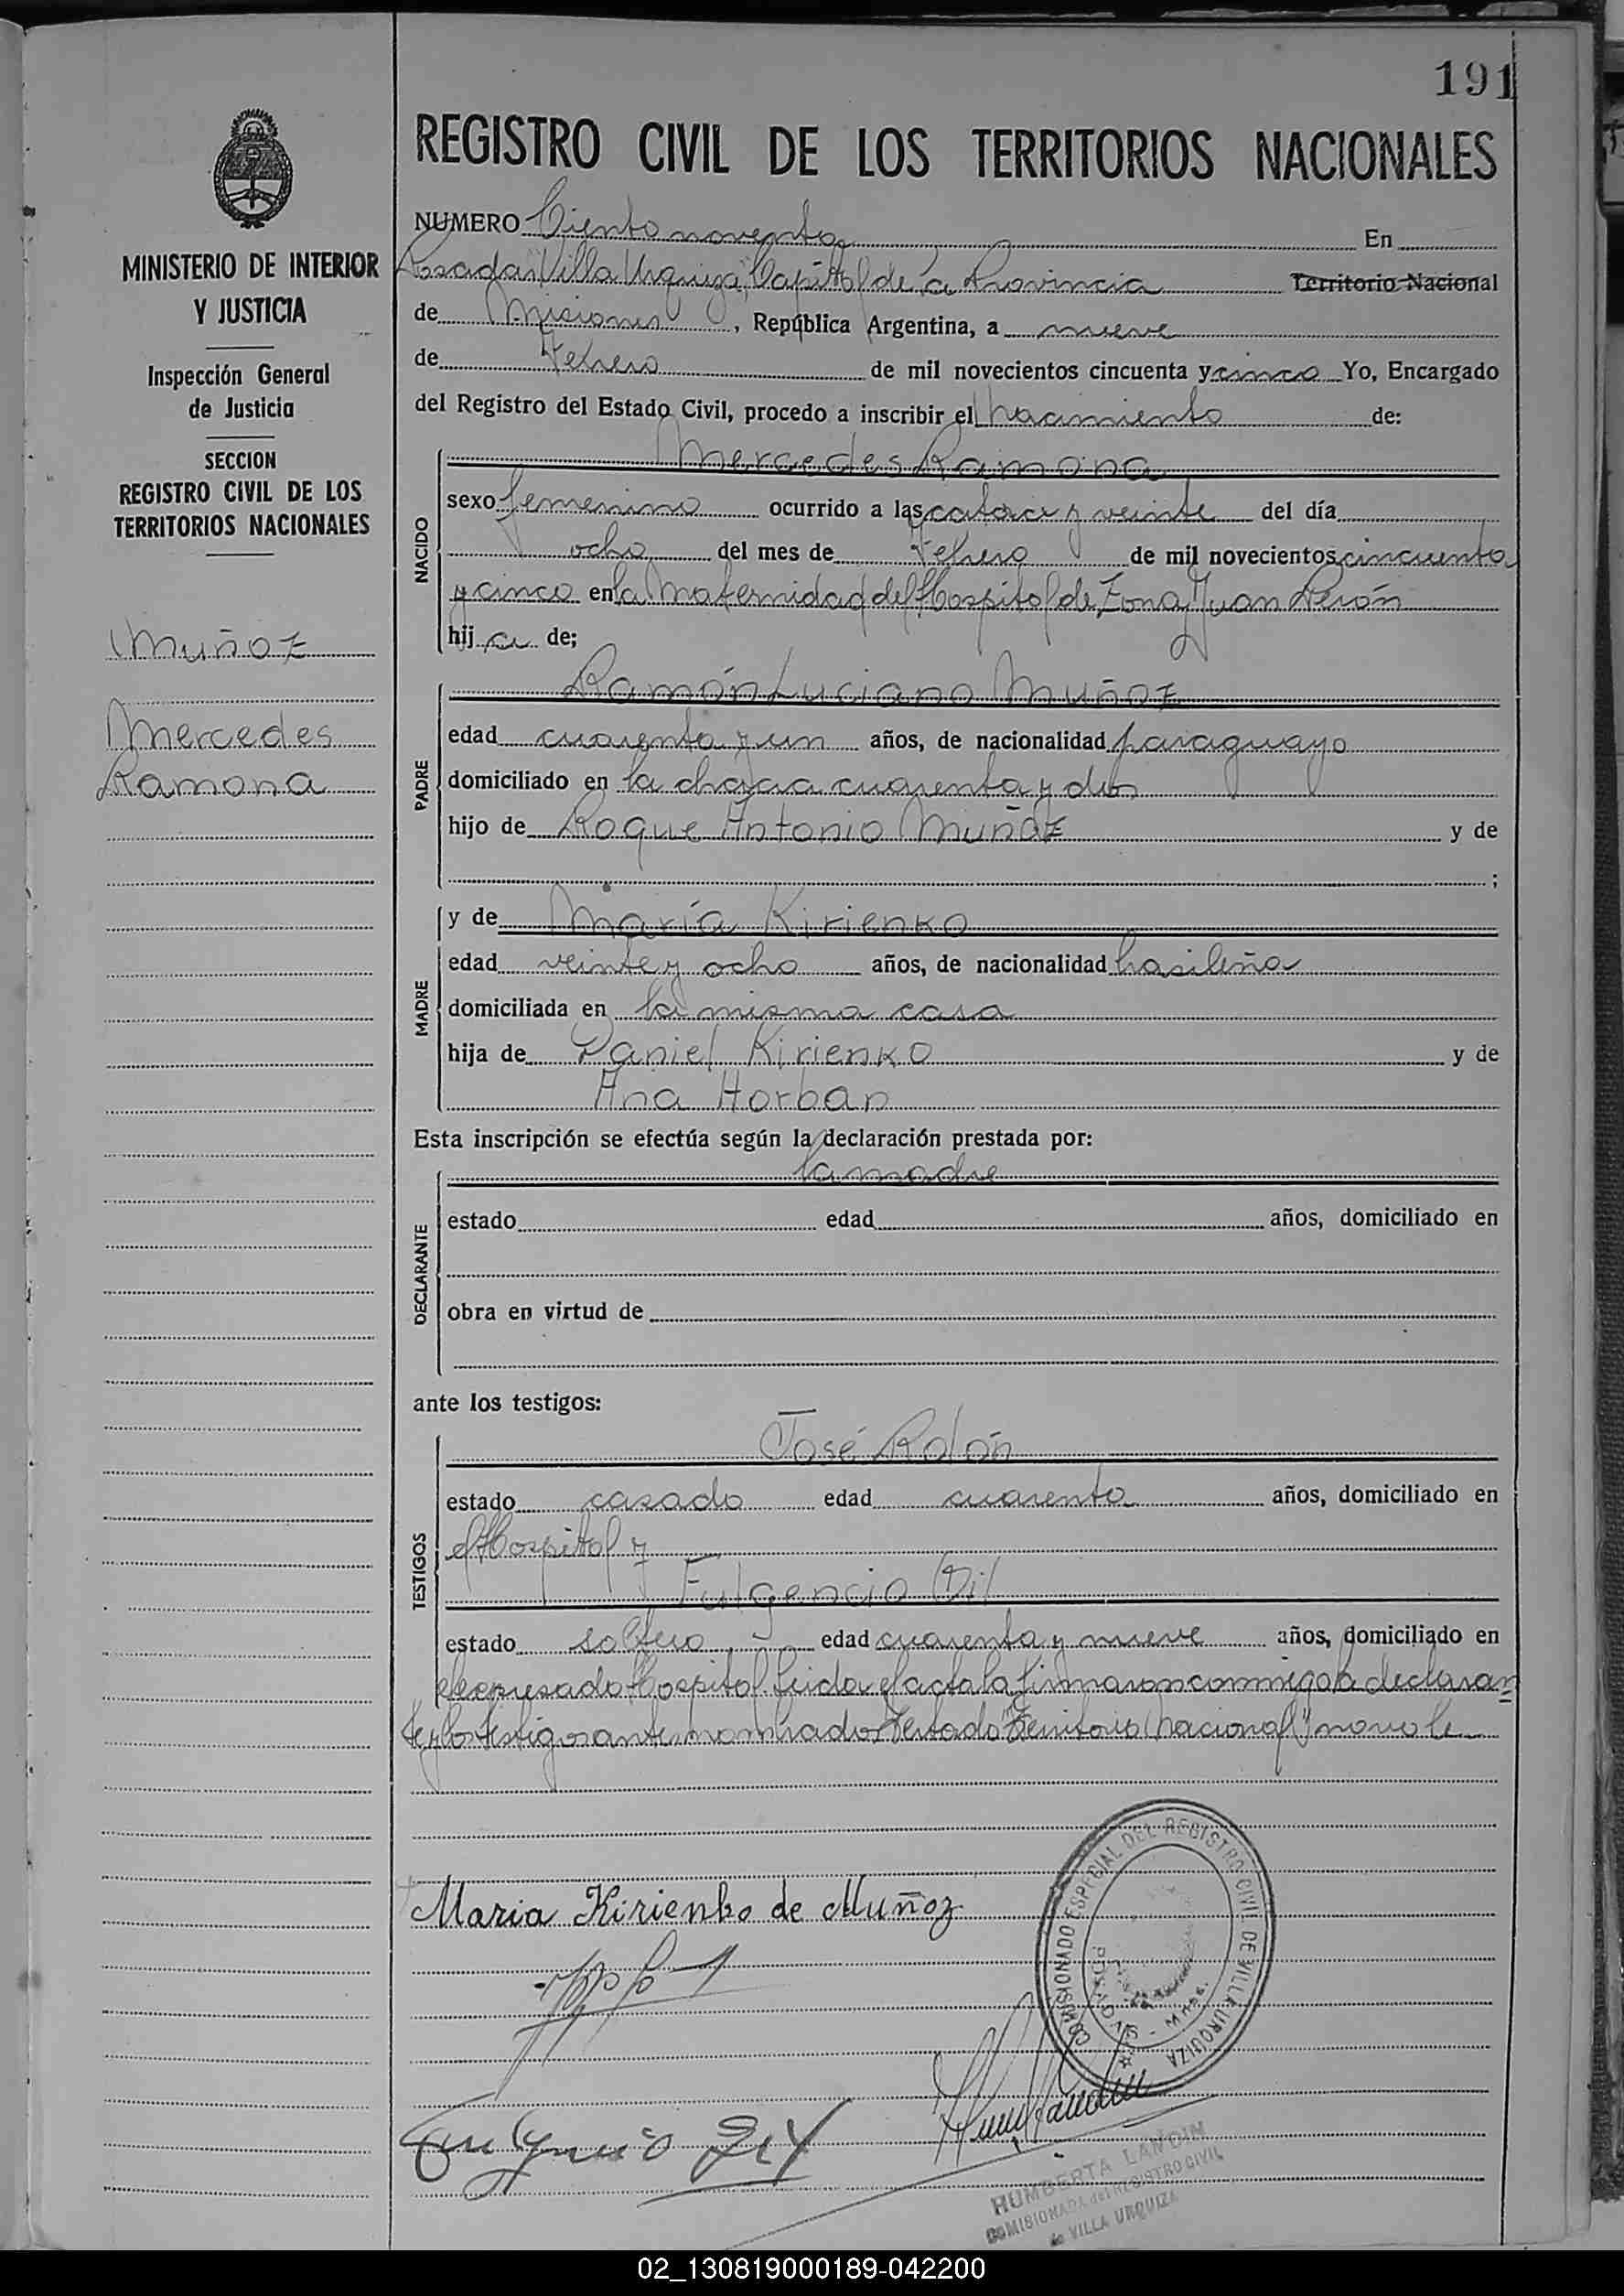 191
REGISTRO CIVIL DE LOS TERRITORIOS NACIONALES
MINISTERIO DE INTERIOR
Y JUSTICIA
Inspección General
de Justicia
SECCION
REGISTRO CIVIL DE LOS
TERRITORIOS NACIONALES
Muñoz
Mercedes
Ramona
NUMERO Ciento noventa En
Posadas "Villa Urquiza" Capital de la Provincia Territorio Nacional
de Misiones, República Argentina, a nueve
de Febrero de mil novecientos cincuenta y cinco Yo, Encargado
del Registro del Estado Civil, procedo a inscribir el nacimiento de:
NACIDO
Mercedes Ramona
sexo femenino ocurrido a las catorce y veinte del día
ocho del mes de Febrero de mil novecientos cincuenta
y cinco en la Maternidad del Hospital de Zona Juan Perón
hija de;
PADRE
Ramón Luciano Muñoz
edad cuarenta y un años, de nacionalidad paraguayo
domiciliado en la chacra cuarenta y dos
hijo de Roque Antonio Muñoz y de
;
MADRE
y de María Kirienko
edad veinte y ocho años, de nacionalidad brasileña
domiciliada en la misma casa
hija de Daniel Kirienko y de
Ana Horban
Esta inscripción se efectúa según la declaración prestada por:
DECLARANTE
la madre
estado edad años, domiciliado en
obra en virtud de
ante los testigos:
TESTIGOS
José Rolón
estado casado edad cuarenta años, domiciliado en
el Hospital y
Fulgencio Gil
estado soltero, edad cuarenta y nueve años, domiciliado en
el expresado Hospital. Leida el acta la firmaron conmigo la declaran
te y los testigos antes nombrados. Testado "Territorio Nacional" no vale
Maria Kirienko de Muñoz
Fulgencio Gil
COMISIONADO ESPECIAL DEL REGISTRO CIVIL DE VILLA URQUIZA
POSADAS - Mnes.
HUMBERTA LANDIN
COMISIONADA del REGISTRO CIVIL
de VILLA URQUIZA
02_130819000189-042200